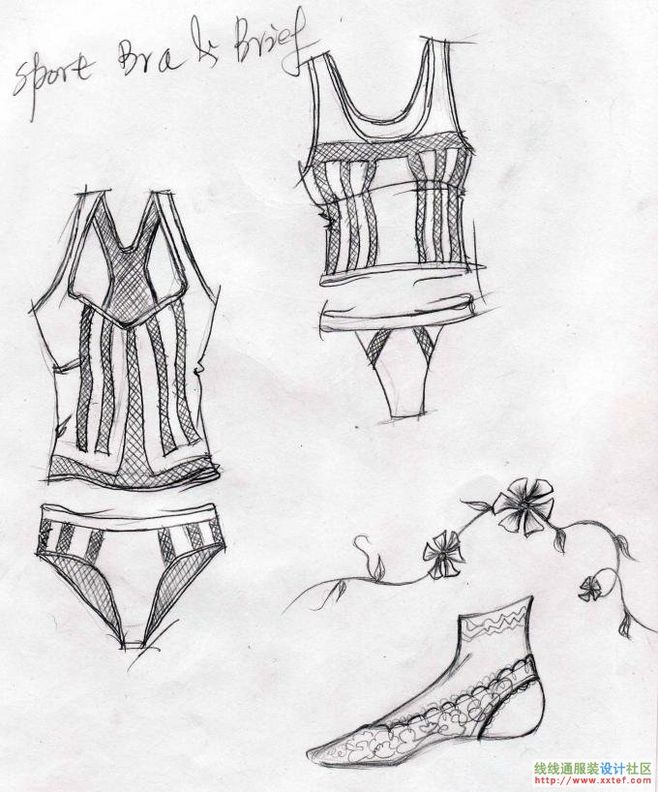 Sport Bra & Brief
线线通服装设计社区
http://www.xxtef.com